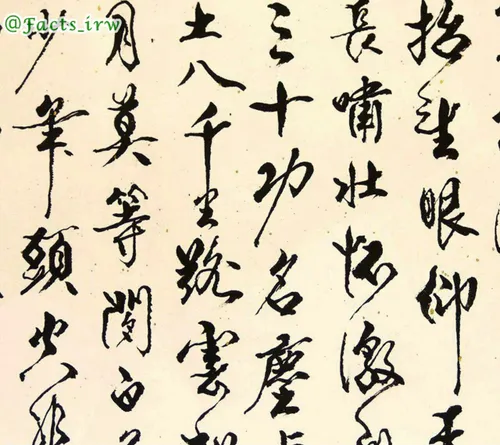 @Facts_irw
抬望眼仰
長嘯壯懷激
三十功名塵
土八千里路雲和
月莫等閒白
少年頭空悲